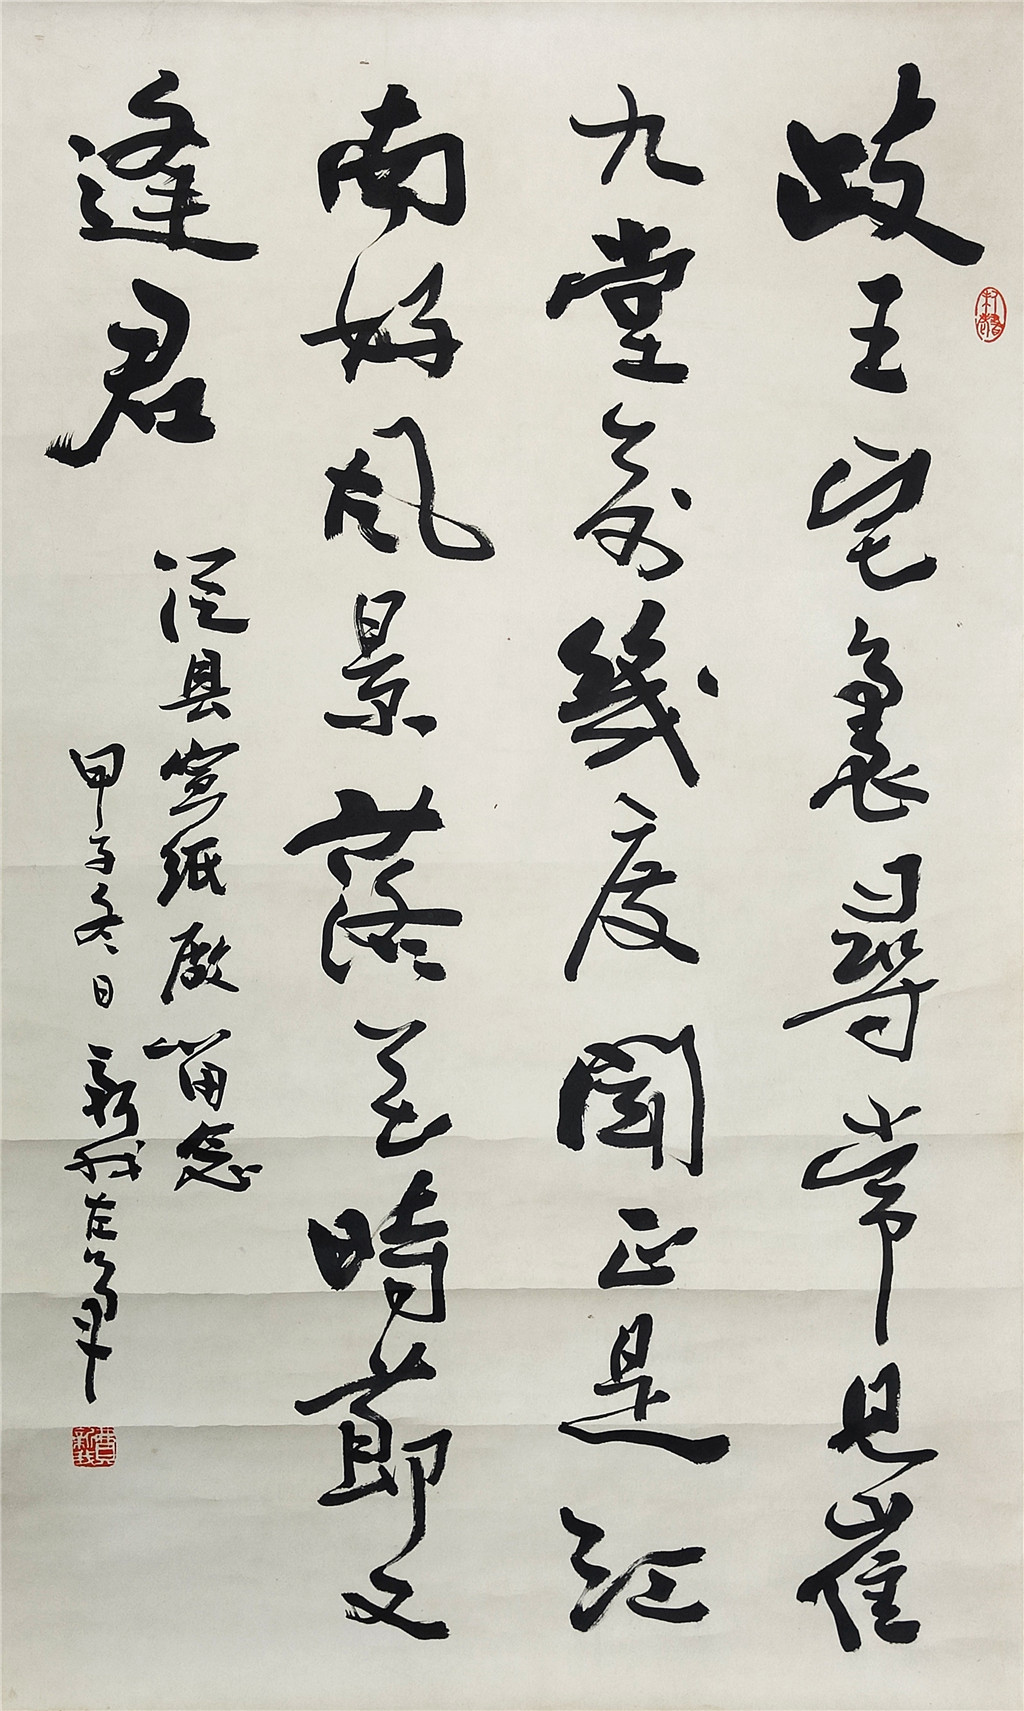 岐王宅裏尋常見崔
九堂前幾度聞正是江
南好風景落花時節又
逢君
泾县宣紙廠留念
甲子冬日新我左筆